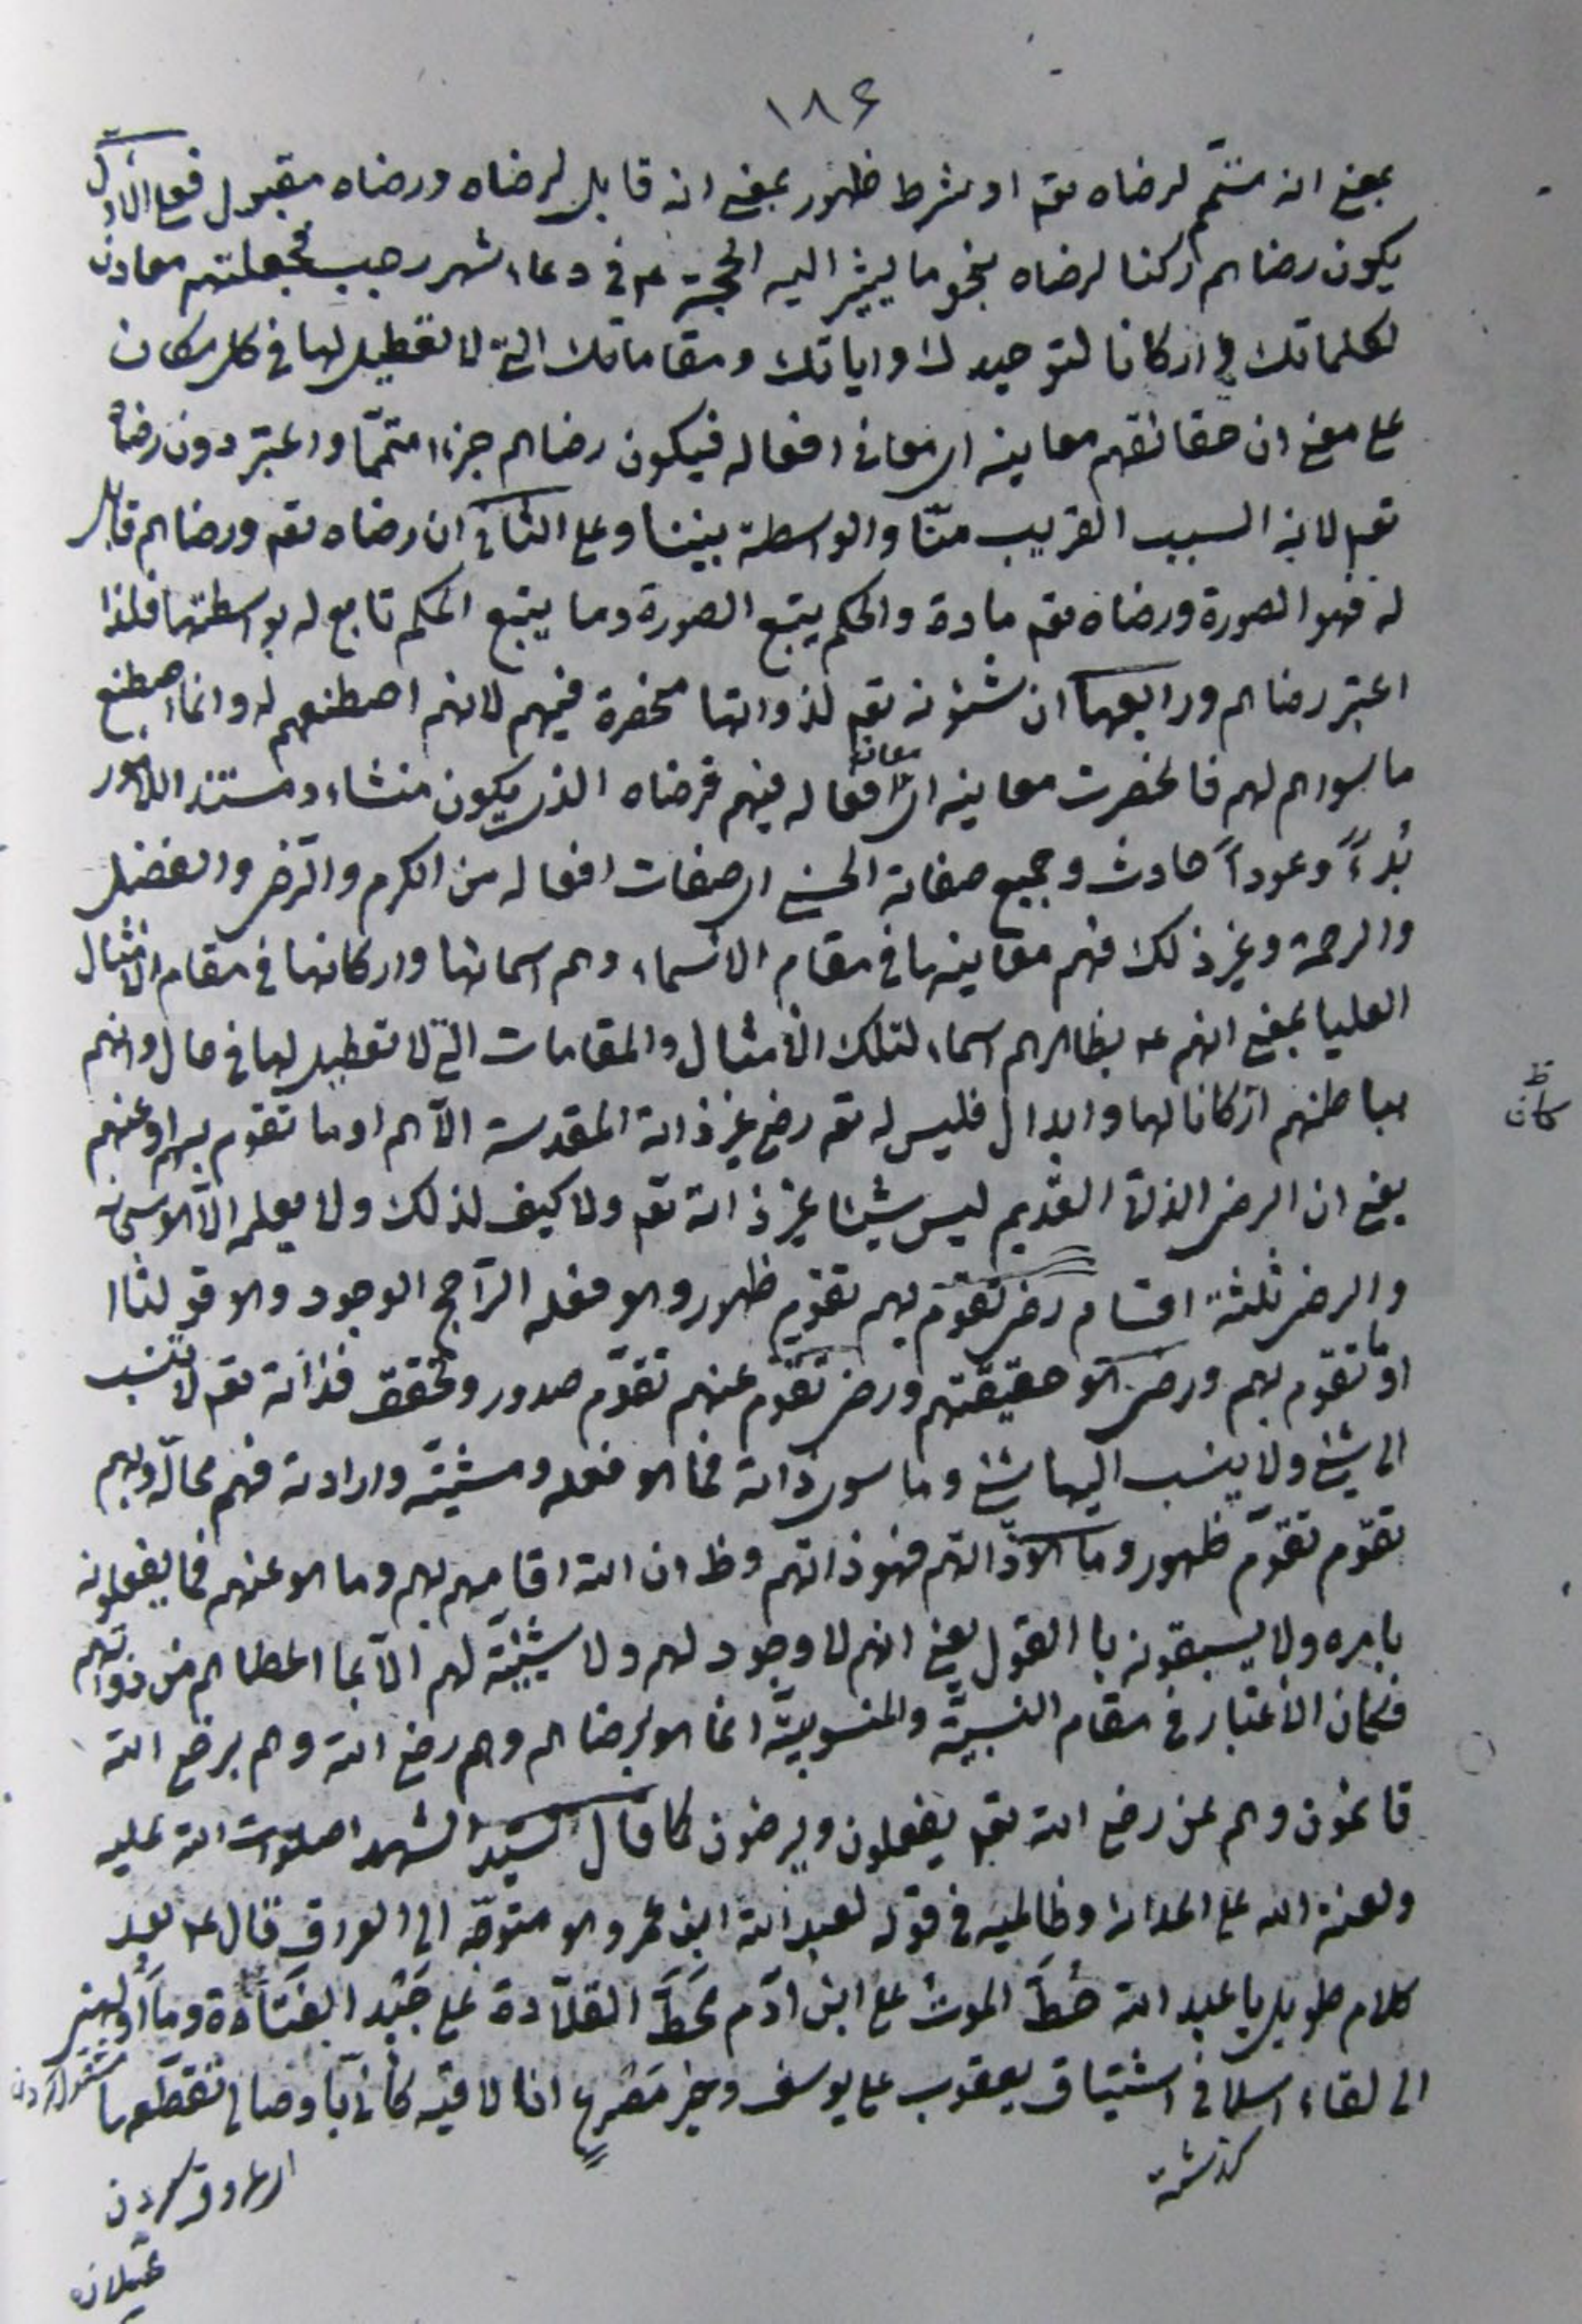 ١٨٤
بمعنى انه متمّم لرضاه تعم او شرط ظهور بمعنى انه قابل لرضاه ورضاه مقبول فعلى الاوّل
يكون رضاهم ركنا لرضاه بنحو ما يشير اليه الحجة عم في دعاء شهر رجب فجعلتهم معادن
لكلماتك و اركانا لتوحيدك واياتك ومقاماتك التي لا تعطيل لها في كل مكان
على معنى ان حقائقهم معانيه اى معانى افعاله فيكون رضاهم جزءا متمّما واعتبر دون رضاه
تعم لانه السبب القريب منّا والواسطة بيننا وعلى الثانى ان رضاه تعم ورضاهم قابل
له فهو الصورة ورضاه تعم مادة والحكم يتبع الصورة وما يتبع الحكم تابع له بواسطتها فلذا
اعتبر رضاهم ورابعها ان شئونه تعم لذواتها منحصرة فيهم لانهم اصطنعهم له وانما اصطنع
ما سواهم لهم فانحصرت معانيه اى معانى افعاله فيهم فرضاه الذى يكون منشاء ومستند الامور
بُدءاً وعوداً حادث وجميع صفاته الحسنى اى صفات افعاله من الكرم والرضى والفضل
والرحمة وغير ذلك فهم معانيها في مقام الاسماء وهم اسمائها واركانها في مقام الامثال
العليا بمعنى انهم عم بظاهرهم اسماء لتلك الامثال والمقامات التي لا تعطيل لها في حال وانهم
ظ
مكان
بباطنهم اركانا لها وابدال فليس له تعم رضى غير ذاته المقدسة الّا هم او ما تقوم بهم او عنهم
يعنى ان الرضى الذاتى القديم ليس شيئا غير ذاته تعم ولا كيف لذلك ولا يعلمه الّا هو سبحانه
والرضى ثلثة اقسام رضى تقوّم بهم تقوّم ظهور وهو فعله الرّاجح الوجود وهو قولنا
او ما تقوم بهم ورضى هو حقيقتهم ورضى تقوّم عنهم تقوّم صدور وتحقق فذاته تعم لا تنسب
الى شئ ولا ينسب اليها شئ وما سوى ذاته فما هو فعله ومشيّته وارادته فهم محالّه وبهم
تقوّم تقوّم ظهور وما هو ذاتهم فهو ذاتهم وظ ان الله اقامهم بهم وما هو عنهم فما يفعلونه
بامره ولا يسبقونه با القول يعنى انهم لا وجود لهم ولا شيئيّة لهم الّا بما اعطاهم من ذواتهم
فكان الاعتبار في مقام النسبيّة والمنسوبيّة انما هو برضاهم وهم رضى الله وهم برضى الله
قائمون وهم عن رضى الله تعم يفعلون ويرضون كما قال سيّد الشهدا صلوات الله عليه
ولعنة الله على اعدائه وظالميه في قوله لعبد الله ابن عمر وهو متوجّه الى العراق قال عم بعد
كلام طويل يا عبد الله خُطَّ الموت على ابن ادم مَخَطَّ القلادة على جيد الفتاة وما اولهنى
الى لقاء اسلافى اشتياق يعقوب على يوسف وخير مصرع انا لاقيه كانى باوصالى تقطعها
گذشته
عسلان